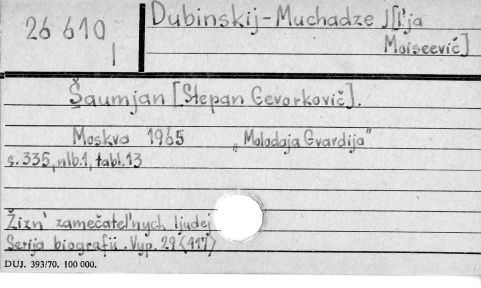 26 610
I
Dubinskij-Muchadze I[l'ja
Moiseevič]
Šaumjan [Stepan Gevorkovič].
Moskva 1965 „Molodaja Gvardija"
s. 335, nlb.1, tabl.13
Žizn' zamečatel'nych ljudej
Serija biografii. Vyp. 29 (417)
DUJ. 393/70. 100 000.